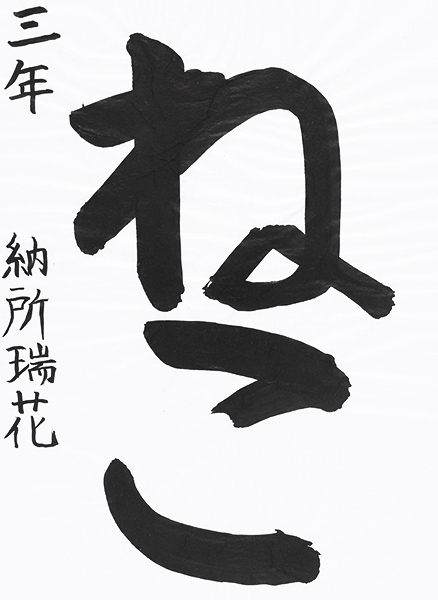 ねこ
三年 納所瑞花